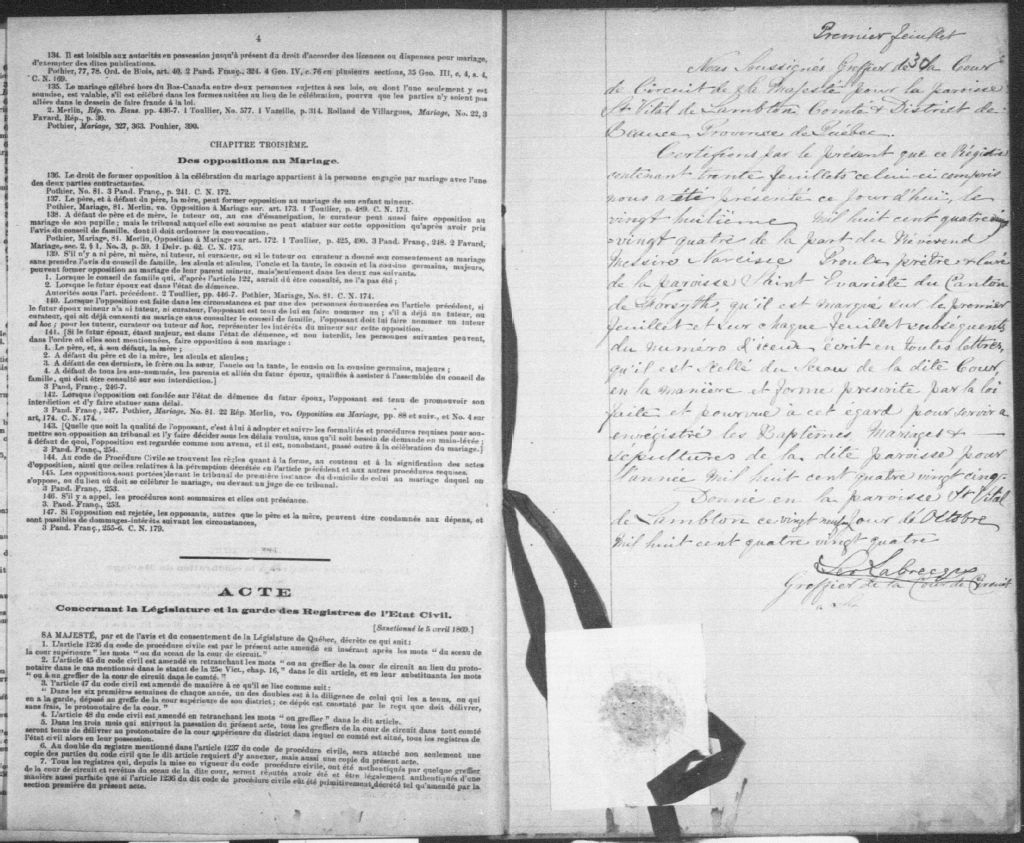 4
134. Il est loisible aux autorités en possession jusqu'à présent du droit d'accorder des licences ou dispenses pour mariage,
d'exempter des dites publications.
Pothier, 77, 78. Ord. de Blois, art. 40. 2 Pand. Franç., 324. 4 Geo. IV, c. 76 en plusieurs sections, 35 Geo. III, c. 4, s. 4,
C. N. 169.
135. Le mariage célébré hors du Bas-Canada entre deux personnes sujettes à ses lois, ou dont l'une seulement y est
soumise, est valable, s'il est célébré dans les formes usitées au lieu de la célébration, pourvu que les parties n'y soient pas
allées dans le dessein de faire fraude à la loi.
2. Merlin, Rép. vo. Bans. pp. 436-7. 1 Toullier, No. 577. 1 Vazeille, p. 314. Rolland de Villargues, Mariage, No. 22, 3
Favard, Rép., p. 39.
Pothier, Mariage, 327, 363. Pouhier, 390.
CHAPITRE TROISIÈME.
Des oppositions au Mariage.
136. Le droit de former opposition à la célébration du mariage appartient à la personne engagée par mariage avec l'une
des deux parties contractantes.
Pothier, No. 81. 3 Pand. Franç., p. 241. C. N. 172.
137. Le père, et à défaut du père, la mère, peut former opposition au mariage de son enfant mineur.
Pothier, Mariage, 81. Merlin. vo. Opposition à Mariage sur art. 173. 1 Toullier, p. 489. C. N. 173.
138. A défaut de père et de mère, le tuteur ou, au cas d'émancipation, le curateur peut aussi faire opposition au
mariage de son pupille; mais le tribunal auquel elle est soumise ne peut statuer sur cette opposition qu'après avoir pris
l'avis du conseil de famille, dont il doit ordonner la convocation.
Pothier, Mariage, 81. Merlin, Opposition à Mariage sur art. 172. 1 Toullier, p. 425, 490. 3 Pand. Franç., 248. 2 Favard,
Mariage, sec. 2, § 1, No. 3, p. 59. 1 Delv. p. 62. C. N. 175.
139. S'il n'y a ni père, ni mère, ni tuteur, ni curateur, ou si le tuteur ou curateur a donné son consentement au mariage
sans prendre l'avis du conseil de famille, les aïeuls et aïeules, l'oncle et la tante, le cousin et la cousine germains, majeurs,
peuvent former opposition au mariage de leur parent mineur, mais seulement dans les deux cas suivants.
1. Lorsque le conseil de famille qui, d'après l'article 122, aurait dû être consulté, ne l'a pas été;
2. Lorsque le futur époux est dans l'état de démence.
Autorités sous l'art. précédent. 2 Toullier, pp. 446-7. Pothier, Mariage, No. 81. C. N. 174.
140. Lorsque l'opposition est faite dans les circonstances et par une des personnes énumérées en l'article précédent, si
le futur époux mineur n'a ni tuteur, ni curateur, l'opposant est tenu de lui en faire nommer un; s'il a déjà un tuteur, ou
curateur, qui ait déjà consenti au mariage sans consulter le conseil de famille, l'opposant doit lui faire nommer un tuteur
ad hoc; pour les tuteur, curateur ou tuteur ad hoc, représenter les intérêts du mineur sur cette opposition.
141. [Si le futur époux, étant majeur, est dans l'état de démence, et non interdit, les personnes suivantes peuvent,
dans l'ordre où elles sont mentionnées, faire opposition à son mariage:
1. Le père, et, à son défaut, la mère;
2. A défaut du père et de la mère, les aïeuls et aïeules;
3. A défaut de ces derniers, le frère ou la sœur, l'oncle ou la tante, le cousin ou la cousine germains, majeurs;
4. A défaut de tous les sus-nommés, les parents et alliés du futur époux, qualifiés à assister à l'assemblée du conseil de
famille, qui doit être consulté sur son interdiction.]
3 Pand. Franç., 246-7.
142. Lorsque l'opposition est fondée sur l'état de démence du futur époux, l'opposant est tenu de promouvoir son
interdiction et d'y faire statuer sans délai.
3 Pand. Franç., 247. Pothier, Mariage, No. 81. 22 Rép. Merlin, vo. Opposition au Mariage, pp. 88 et suiv., et No. 4 sur
art. 174. C. N. 174.
143. [Quelle que soit la qualité de l'opposant, c'est à lui à adopter et suivre les formalités et procédures requises pour sou-
mettre son opposition au tribunal et l'y faire décider sous les délais voulus, sans qu'il soit besoin de demande en main-levée;
à défaut de quoi, l'opposition est regardée comme non avenue, et il est, nonobstant, passé outre à la célébration du mariage.]
3 Pand. Franç., 254.
144. Au code de Procédure Civile se trouvent les règles quant à la forme, au contenu et à la signification des actes
d'opposition, ainsi que celles relatives à la péremption décrétée en l'article précédent et aux autres procédures requises.
145. Les oppositions sont portées devant le tribunal de première instance du domicile de celui au mariage duquel on
s'oppose, ou du lieu où doit se célébrer le mariage, ou devant un juge de ce tribunal.
3 Pand. Franç., 253.
146. S'il y a appel, les procédures sont sommaires et elles ont préséance.
3. Pand. Franç., 253.
147. Si l'opposition est rejetée, les opposants, autres que le père et la mère, peuvent être condamnés aux dépens, et
sont passibles de dommages-intérêts suivant les circonstances,
3 Pand. Franç., 255-6. C. N. 179.
ACTE
Concernant la Législature et la garde des Registres de l'Etat Civil.
[Sanctionné le 5 avril 1869.]
SA MAJESTÉ, par et de l'avis et du consentement de la Législature de Québec, décrète ce qui suit:
1. L'article 1236 du code de procédure civile est par le présent acte amendé en insérant après les mots "du sceau de
la cour supérieure" les mots "ou du sceau de la cour de circuit."
2. L'article 45 du code civil est amendé en retranchant les mots "ou au greffier de la cour de circuit au lieu du proto-
notaire dans le cas mentionné dans le statut de la 25e Vict., chap. 16," dans le dit article, et en leur substituants les mots
"ou à un greffier de la cour de circuit dans le comté."
3. l'article 47 du code civil est amendé de manière à ce qu'il se lise comme suit:
"Dans les six premières semaines de chaque année, un des doubles est à la diligence de celui qui les a tenus, ou qui
en a la garde, déposé au greffe de la cour supérieure de son district; ce dépôt est constaté par le reçu que doit délivrer,
sans frais, le protonotaire de la cour."
4. L'article 48 du code civil est amendé en retranchant les mots "on greffier" dans le dit article.
5. Dans les trois mois qui suivront la passation du présent acte, tous les greffiers de la cour de circuit dans tout comté
seront tenus de délivrer au protonotaire de la cour supérieure du district dans lequel ce comté est situé, tous les registres de
l'état civil alors en leur possession.
6. Au double du registre mentionné dans l'article 1237 du code de procédure civile, sera attaché non seulement une
copie des parties du code civil que le dit article requiert d'y annexer, mais aussi une copie du présent acte.
7. Tous les registres qui, depuis la mise en vigueur du code procédure civile, ont été authentiqués par quelque greffier
de la cour de circuit et revêtus du sceau de la dite cour, seront réputés avoir été et être légalement authentiqués d'une
manière aussi parfaite que si l'article 1236 du dit code de procédure civile eût été primitivement décrété tel qu'amendé par la
section première du présent acte.
Premier feuillet
30
Nous Soussignés Greffier de la Cour
de Circuit de Sa Majesté pour la paroisse
St Vital de Lambton Comté & District de
Beauce, Province de Québec.
Certifions par le présent que ce Régistre
contenant trente feuillets celui-ci compris
nous a été présenté ce jourd'hui, le
vingt huitième Mil huit cent quatre
vingt quatre de la part du Révérend
Messire Narcisse Proulx prêtre curé
de la paroisse Saint Evariste du Canton
de Forsyth, qu'il est marqué sur le premier
feuillet et sur chaque feuillet subséquents
du numéro d'iceux écrit en toutes lettres,
qu'il est Scellé du Sceau de la dite Cour,
en la manière et forme prescrite par la loi
faite et pourvue à cet égard pour servir a
enrégistré les Baptêmes Mariages &
Sépultures de la dite paroisse pour
l'année Mil huit cent quatre vingt cinq.
Donné en la paroisse St Vital
de Lambton ce vingt neuf Jour de Octobre
Mil huit cent quatre vingt quatre
Labrecque
Greffier de la Cour de Circuit